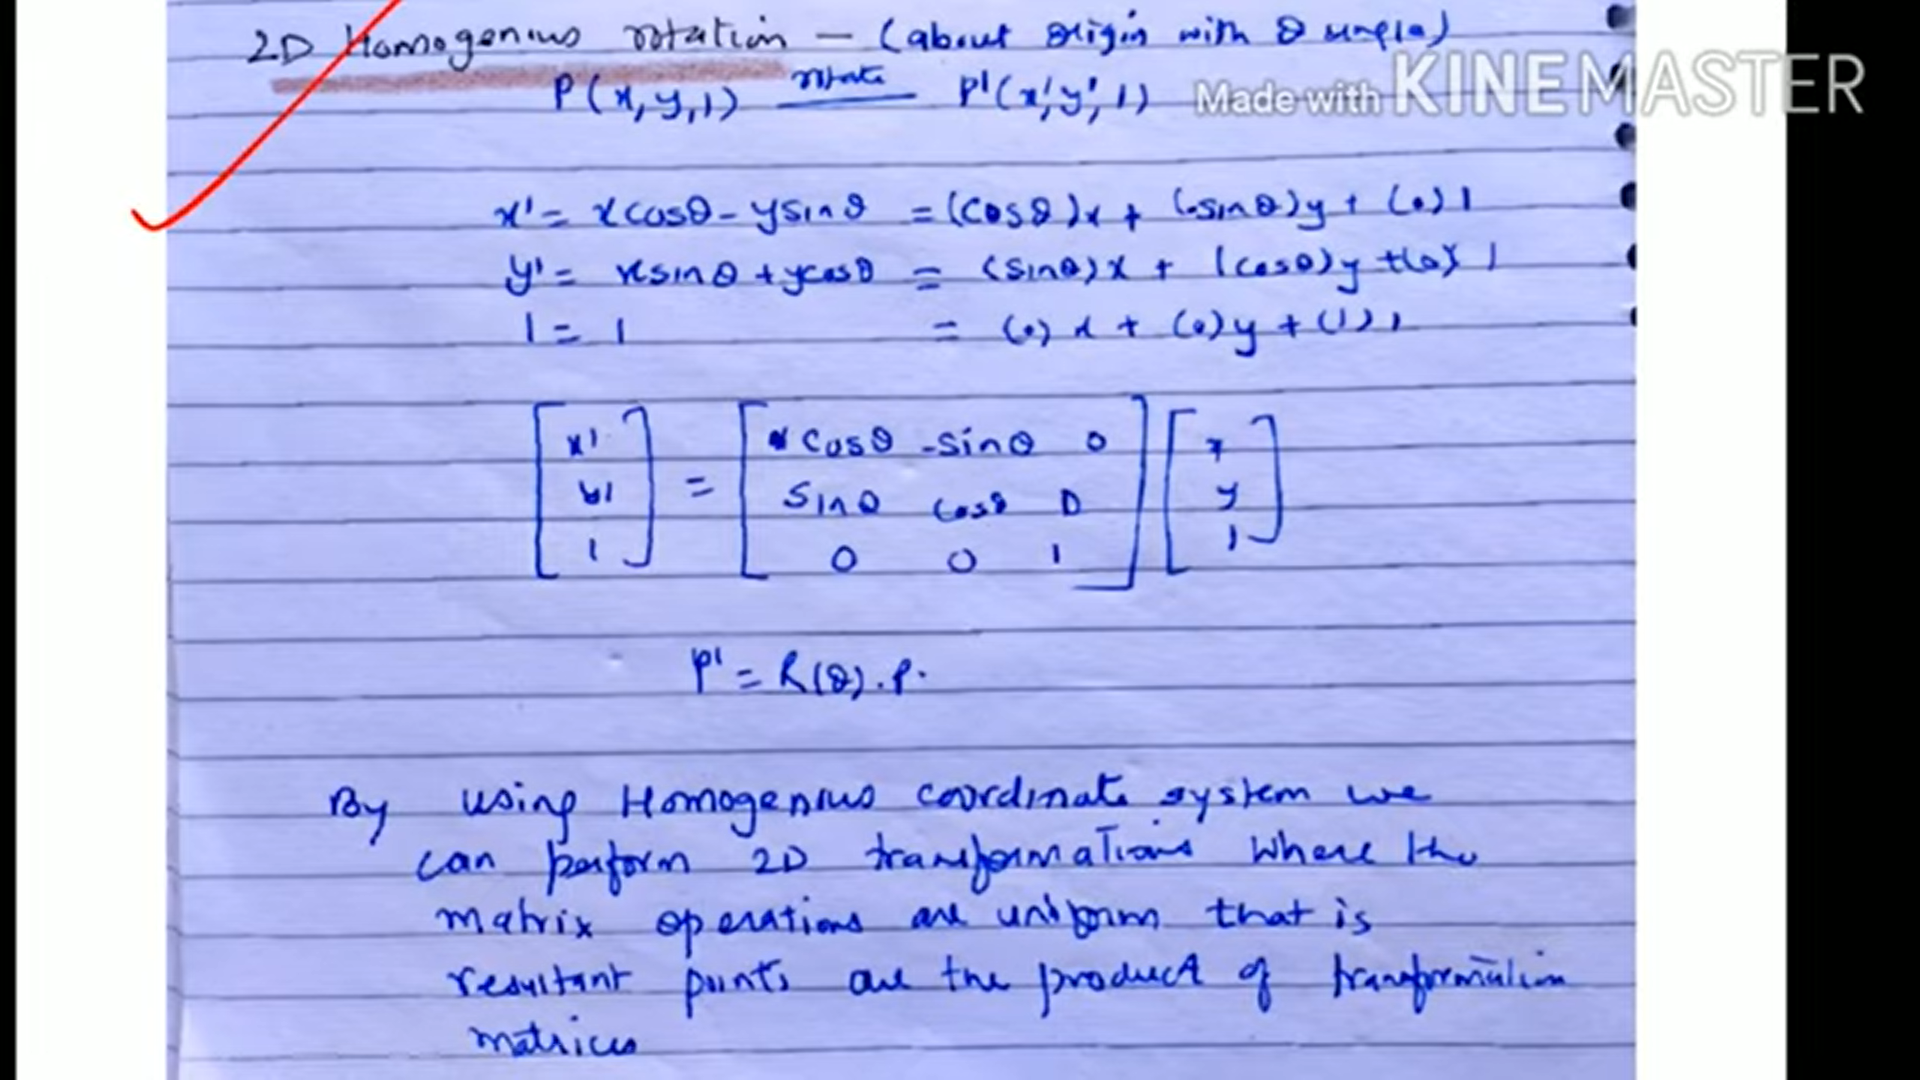 2D Homogenius rotation — (about origin with θ angle)
P(x, y, 1) rotate P'(x', y', 1)
Made with KINEMASTER
x' = xcosθ - ysinθ = (cosθ)x + (-sinθ)y + (0)1
y' = xsinθ + ycosθ = (sinθ)x + (cosθ)y + (0)1
1 = 1 = (0)x + (0)y + (1)1
[x' y' 1] = [cosθ -sinθ 0
sinθ cosθ 0
0 0 1] [x y 1]
P' = R(θ).P.
By using Homogenius coordinate system we
can perform 2D transformations where the
matrix operations are uniform that is
resultant points are the product of transformation
matrices